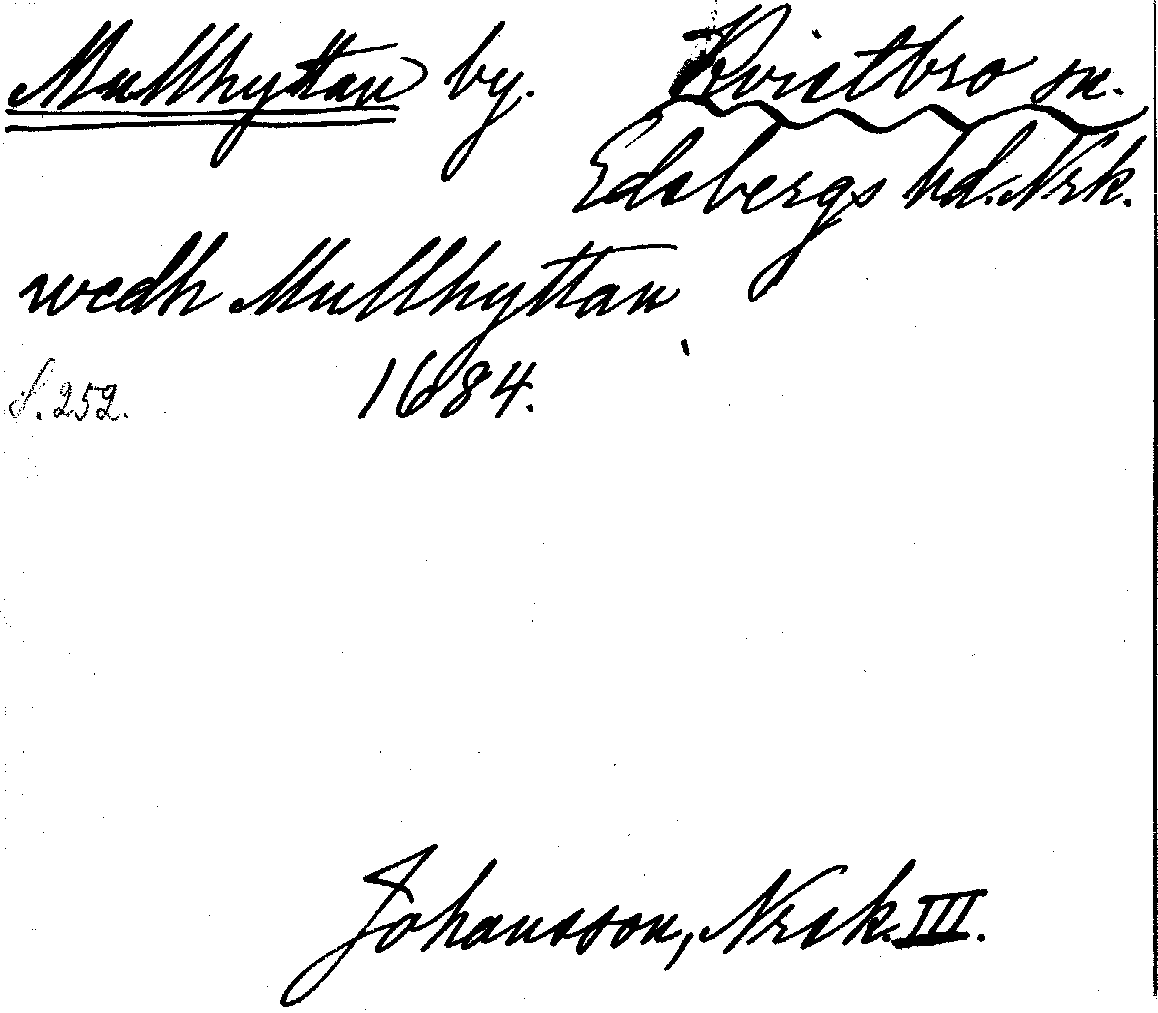 Mullhyttan by. Kvistbro sn.
Edsbergs hd. Nrk.
wedh Mullhyttan
S. 252. 1684.
Johansson, Nrsk. III.